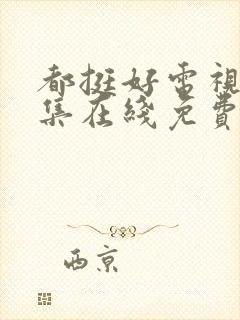 都挺好電視
集在綫免費
西京